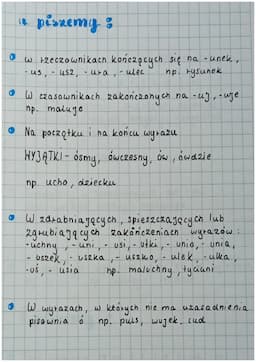 u piszemy :
w rzeczownikach kończących się na -unek,
-us, -usz, -ura, -ulec np. rysunek
W czasownikach zakończonych na -uj, -uje
np. maluje
Na początku i na końcu wyrazu
WYJĄTKI - ósmy, ówczesny, ów, ówdzie
np. ucho, dziecku
W zdrabniających, spieszczających lub
zgrubiających zakończeniach wyrazów:
-uchny, -uni, -usi, -utki, -unio, -unia,
-uszek, -uszka, -uszko, -ulek, -ulka,
-uś, -usia np. maluchny, tyciuni
W wyrazach, w których nie ma uzasadnienia
pisownia ó np. puls, wujek, cud